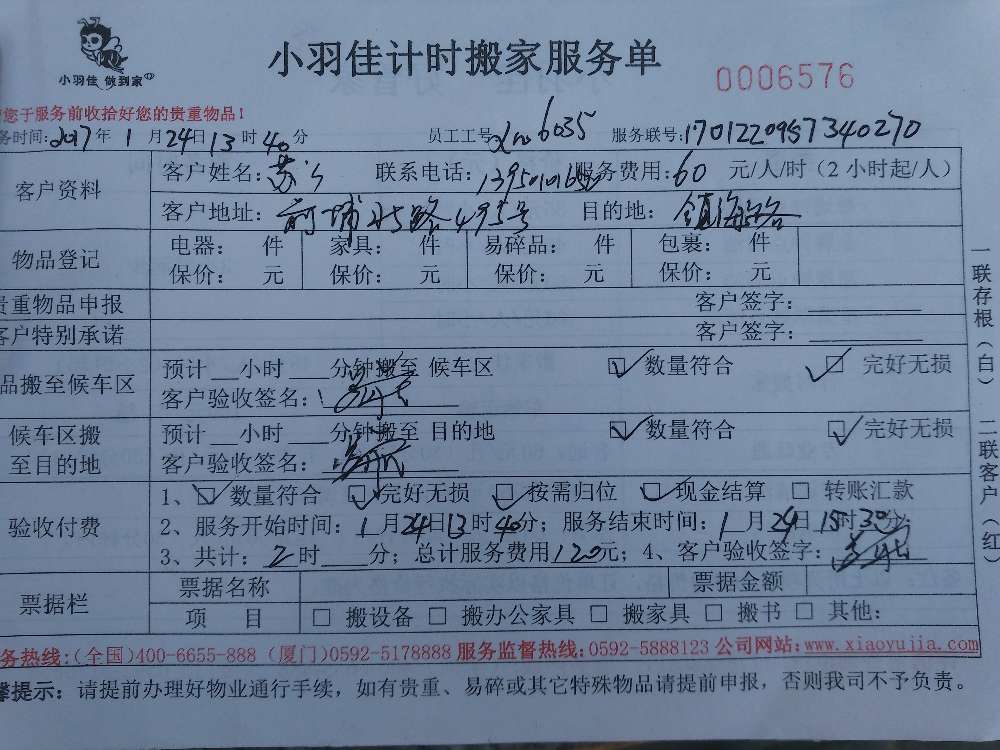 小羽佳 做到家
小羽佳计时搬家服务单
0006576
您于服务前收拾好您的贵重物品！
务时间：2017年 1 月24日13时40分 员工工号 6035 服务联号：1701220957340270
客户资料
客户姓名：苏 联系电话： 服务费用：60 元/人/时（2小时起/人）
客户地址：前埔 路495号 目的地：镇海路
物品登记
电器： 件 家具： 件 易碎品： 件 包裹： 件
保价： 元 保价： 元 保价： 元 保价： 元
贵重物品申报 客户签字：
客户特别承诺 客户签字：
品搬至候车区
预计__小时___分钟搬至 候车区 ☑ 数量符合 ☑ 完好无损
客户验收签名：
候车区搬
至目的地
预计__小时___分钟搬至 目的地 ☑ 数量符合 ☑ 完好无损
客户验收签名：
验收付费
1、☑ 数量符合 ☑ 完好无损 ☑ 按需归位 ☑ 现金结算 □ 转账汇款
2、服务开始时间：1月24日13时40分；服务结束时间：1月24日15时30分；
3、共计：2时____分；总计服务费用120元；4、客户验收签字：
票据栏
票据名称 票据金额
项 目 □ 搬设备 □ 搬办公家具 □ 搬家具 □ 搬书 □ 其他：
务热线：(全国)400-6655-888 (厦门)0592-5178888 服务监督热线：0592-5888123 公司网站：www.xiaoyujia.com
馨提示：请提前办理好物业通行手续，如有贵重、易碎或其它特殊物品请提前申报，否则我司不予负责。
一联存根（白） 二联客户（红）